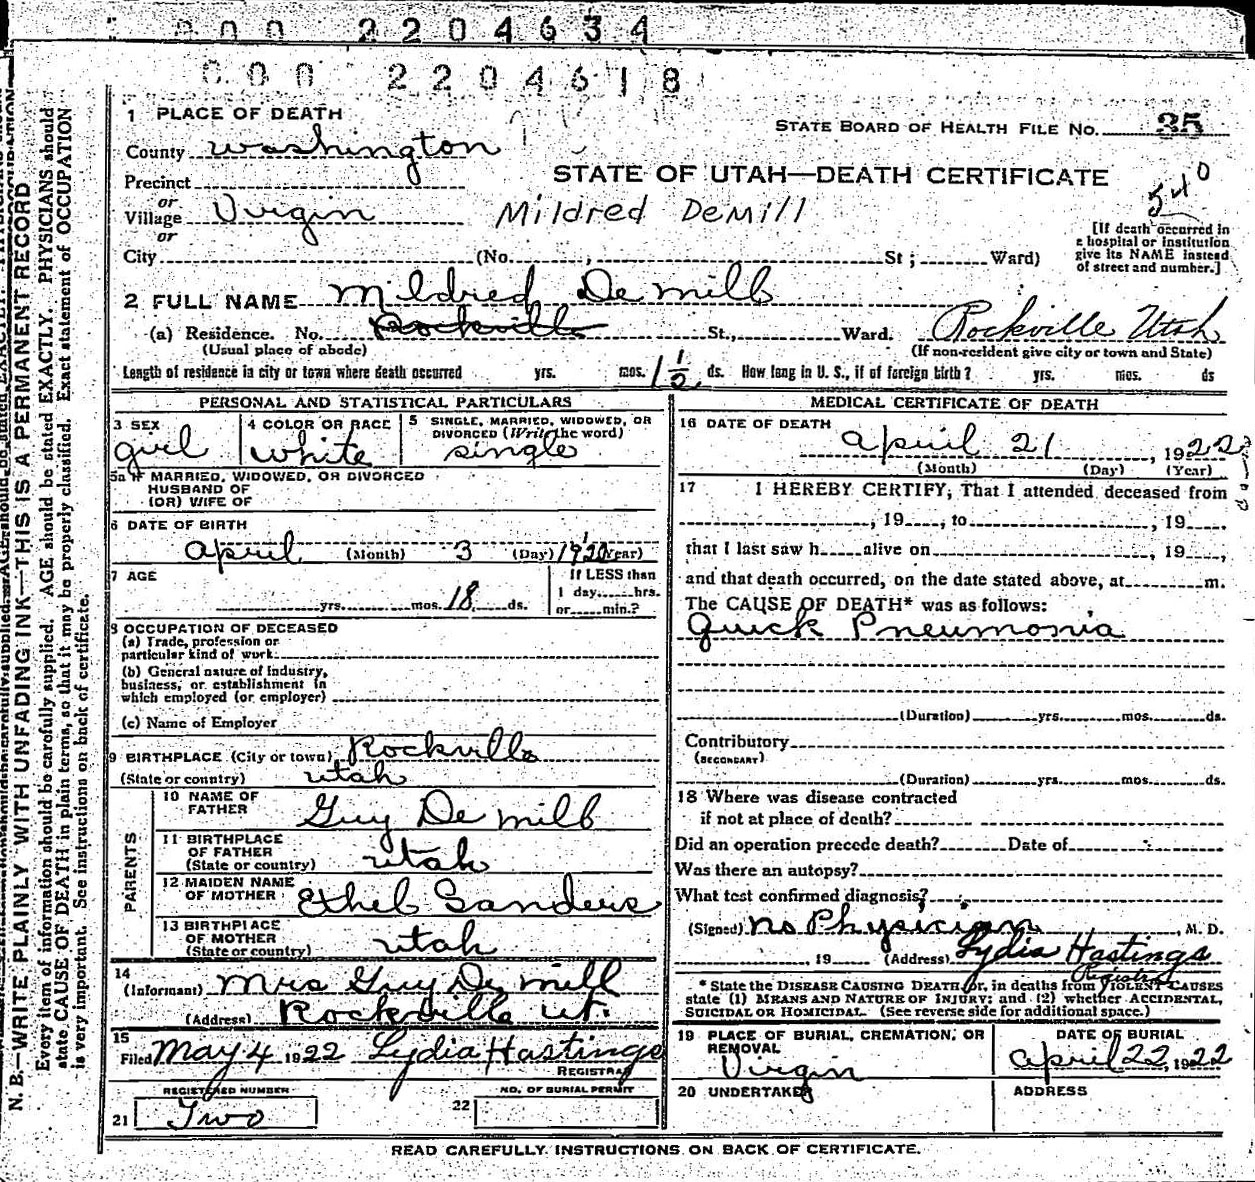 000 2204634
000 2204618
1 PLACE OF DEATH
STATE BOARD OF HEALTH FILE NO. 35
County Washington
STATE OF UTAH—DEATH CERTIFICATE
540
Precinct
or
Village Virgin
Mildred DeMill
or
[If death occurred in
a hospital or institution
give its NAME instead
of street and number.]
City (No. , St ; Ward)
2 FULL NAME Mildred De mill
(a) Residence. No. Rockville St., Ward. Rockville Utah
(Usual place of abode) (If non-resident give city or town and State)
Length of residence in city or town where death occurred yrs. mos. 1 1/2 ds. How long in U. S., if of foreign birth ? yrs. mos. ds
PERSONAL AND STATISTICAL PARTICULARS
3 SEX
girl
4 COLOR OR RACE
white
5 SINGLE, MARRIED, WIDOWED, OR
DIVORCED (Write the word)
single
5a IF MARRIED, WIDOWED, OR DIVORCED
HUSBAND OF
(OR) WIFE OF
6 DATE OF BIRTH
april (Month) 3 (Day) 19 (Year)
7 AGE
yrs. mos. 18 ds.
If LESS than
1 day hrs.
or min.?
8 OCCUPATION OF DECEASED
(a) Trade, profession or
particular kind of work
(b) General nature of industry,
business, or establishment in
which employed (or employer)
(c) Name of Employer
9 BIRTHPLACE (City or town) Rockville
(State or country) utah
PARENTS
10 NAME OF
FATHER Guy De mill
11 BIRTHPLACE
OF FATHER
(State or country) utah
12 MAIDEN NAME
OF MOTHER Ethel Sanders
13 BIRTHPLACE
OF MOTHER
(State or country) utah
14
(Informant) Mrs Guy De mill
(Address) Rockville ut.
15
Filed May 4 1922 Lydia Hastings
REGISTRAR
REGISTERED NUMBER
21 Two
NO. OF BURIAL PERMIT
22
MEDICAL CERTIFICATE OF DEATH
16 DATE OF DEATH
april 21, 1922
(Month) (Day) (Year)
17 I HEREBY CERTIFY, That I attended deceased from
, 19 , to , 19 ,
that I last saw h alive on , 19 ,
and that death occurred, on the date stated above, at m.
The CAUSE OF DEATH* was as follows:
Quick Pneumonia
(Duration) yrs. mos. ds.
Contributory
(SECONDARY)
(Duration) yrs. mos. ds.
18 Where was disease contracted
if not at place of death?
Did an operation precede death? Date of
Was there an autopsy?
What test confirmed diagnosis?
(Signed) no Physician, M. D.
, 19 (Address) Lydia Hastings
Registrar
* State the DISEASE CAUSING DEATH, or, in deaths from VIOLENT CAUSES
state (1) MEANS AND NATURE OF INJURY; and (2) whether ACCIDENTAL,
SUICIDAL OR HOMICIDAL. (See reverse side for additional space.)
19 PLACE OF BURIAL, CREMATION, OR
REMOVAL
Virgin
DATE OF BURIAL
april 22, 1922
20 UNDERTAKER
ADDRESS
READ CAREFULLY INSTRUCTIONS ON BACK OF CERTIFICATE.
N. B.—WRITE PLAINLY WITH UNFADING INK—THIS IS A PERMANENT RECORD
Every item of information should be carefully supplied. AGE should be stated EXACTLY. PHYSICIANS should
state CAUSE OF DEATH in plain terms, so that it may be properly classified. Exact statement of OCCUPATION
is very important. See instructions on back of certificate.